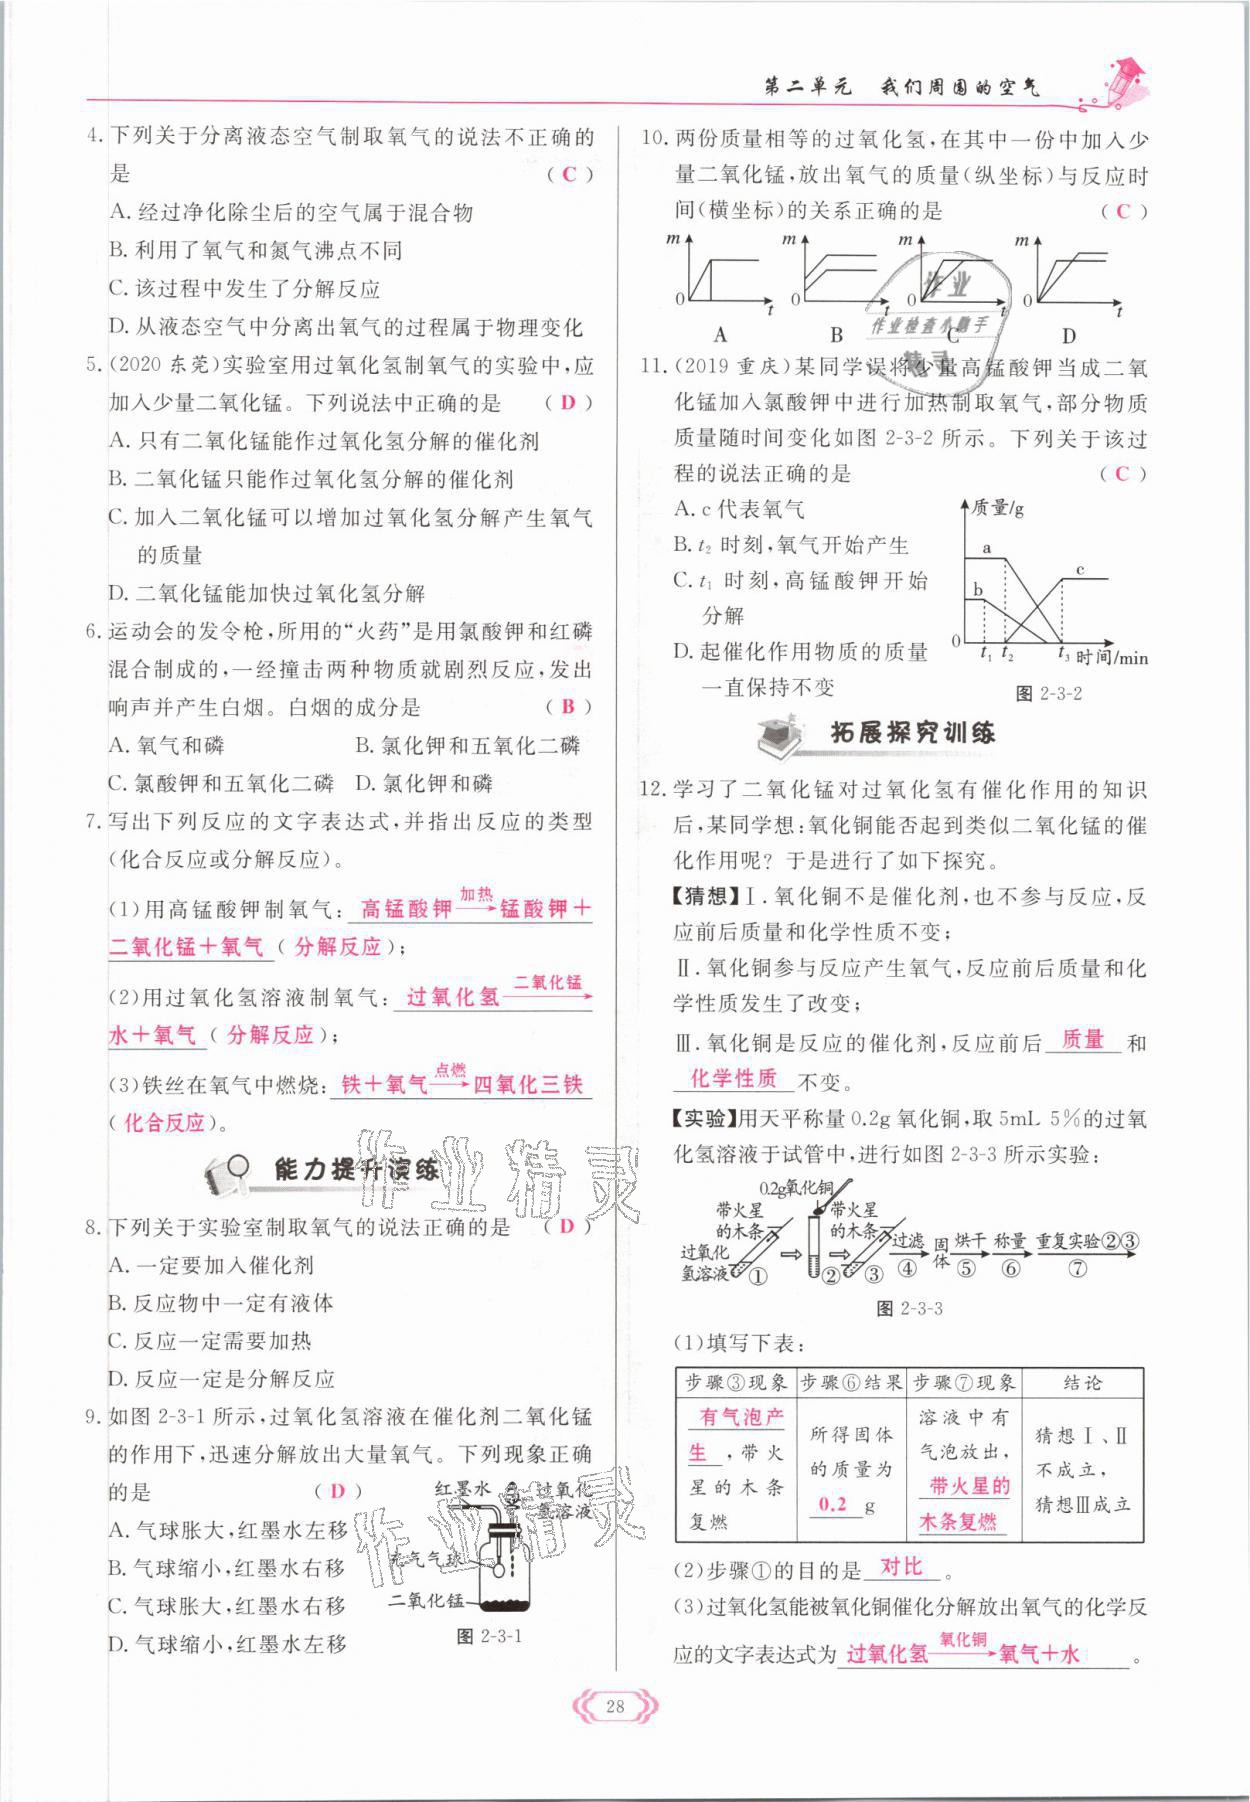 第二单元 我们周围的空气
4. 下列关于分离液态空气制取氧气的说法不正确的
是 ( C )
A. 经过净化除尘后的空气属于混合物
B. 利用了氧气和氮气沸点不同
C. 该过程中发生了分解反应
D. 从液态空气中分离出氧气的过程属于物理变化
5. (2020 东莞)实验室用过氧化氢制氧气的实验中,应
加入少量二氧化锰。下列说法中正确的是 ( D )
A. 只有二氧化锰能作过氧化氢分解的催化剂
B. 二氧化锰只能作过氧化氢分解的催化剂
C. 加入二氧化锰可以增加过氧化氢分解产生氧气
的质量
D. 二氧化锰能加快过氧化氢分解
6. 运动会的发令枪,所用的“火药”是用氯酸钾和红磷
混合制成的,一经撞击两种物质就剧烈反应,发出
响声并产生白烟。白烟的成分是 ( B )
A. 氧气和磷 B. 氯化钾和五氧化二磷
C. 氯酸钾和五氧化二磷 D. 氯化钾和磷
7. 写出下列反应的文字表达式,并指出反应的类型
(化合反应或分解反应)。
(1)用高锰酸钾制氧气: 高锰酸钾 加热→ 锰酸钾+
二氧化锰+氧气 ( 分解反应);
(2)用过氧化氢溶液制氧气: 过氧化氢 二氧化锰→
水+氧气 ( 分解反应);
(3)铁丝在氧气中燃烧: 铁+氧气 点燃→ 四氧化三铁
( 化合反应)。
能力提升演练
8. 下列关于实验室制取氧气的说法正确的是 ( D )
A. 一定要加入催化剂
B. 反应物中一定有液体
C. 反应一定需要加热
D. 反应一定是分解反应
9. 如图 2-3-1 所示,过氧化氢溶液在催化剂二氧化锰
的作用下,迅速分解放出大量氧气。下列现象正确
的是 ( D )
A. 气球胀大,红墨水左移
B. 气球缩小,红墨水右移
C. 气球胀大,红墨水右移
D. 气球缩小,红墨水左移
红墨水
过氧化
氢溶液
充气气球
二氧化锰
图 2-3-1
10. 两份质量相等的过氧化氢,在其中一份中加入少
量二氧化锰,放出氧气的质量(纵坐标)与反应时
间(横坐标)的关系正确的是 ( C )
m m m m
0 0 0 0
t t t t
A B C D
11. (2019 重庆)某同学误将少量高锰酸钾当成二氧
化锰加入氯酸钾中进行加热制取氧气,部分物质
质量随时间变化如图 2-3-2 所示。下列关于该过
程的说法正确的是 ( C )
A. c 代表氧气
B. t2 时刻,氧气开始产生
C. t1 时刻,高锰酸钾开始
分解
D. 起催化作用物质的质量
一直保持不变
质量/g
a
b
c
0 t1 t2 t3 时间/min
图 2-3-2
拓展探究训练
12. 学习了二氧化锰对过氧化氢有催化作用的知识
后,某同学想:氧化铜能否起到类似二氧化锰的催
化作用呢?于是进行了如下探究。
【猜想】Ⅰ. 氧化铜不是催化剂,也不参与反应,反
应前后质量和化学性质不变;
Ⅱ. 氧化铜参与反应产生氧气,反应前后质量和化
学性质发生了改变;
Ⅲ. 氧化铜是反应的催化剂,反应前后 质量 和
化学性质 不变。
【实验】用天平称量0.2g 氧化铜,取 5mL 5%的过氧
化氢溶液于试管中,进行如图 2-3-3 所示实验:
0.2g氧化铜
带火星
的木条
带火星
的木条
过氧化
氢溶液
① ② ③
过滤 ④ 固体 烘干 ⑤ 称量 ⑥ 重复实验②③ ⑦
图 2-3-3
(1)填写下表:
步骤③现象 步骤⑥结果 步骤⑦现象 结论
有气泡产
生 ,带火
星的木条
复燃
所得固体
的质量为
0.2 g
溶液中有
气泡放出,
带火星的
木条复燃
猜想Ⅰ、Ⅱ
不成立,
猜想Ⅲ成立
(2)步骤①的目的是 对比 。
(3)过氧化氢能被氧化铜催化分解放出氧气的化学反
应的文字表达式为 过氧化氢 氧化铜→ 氧气+水 。
28
作业
作业检查小助手
精灵
作业精灵
作业精灵